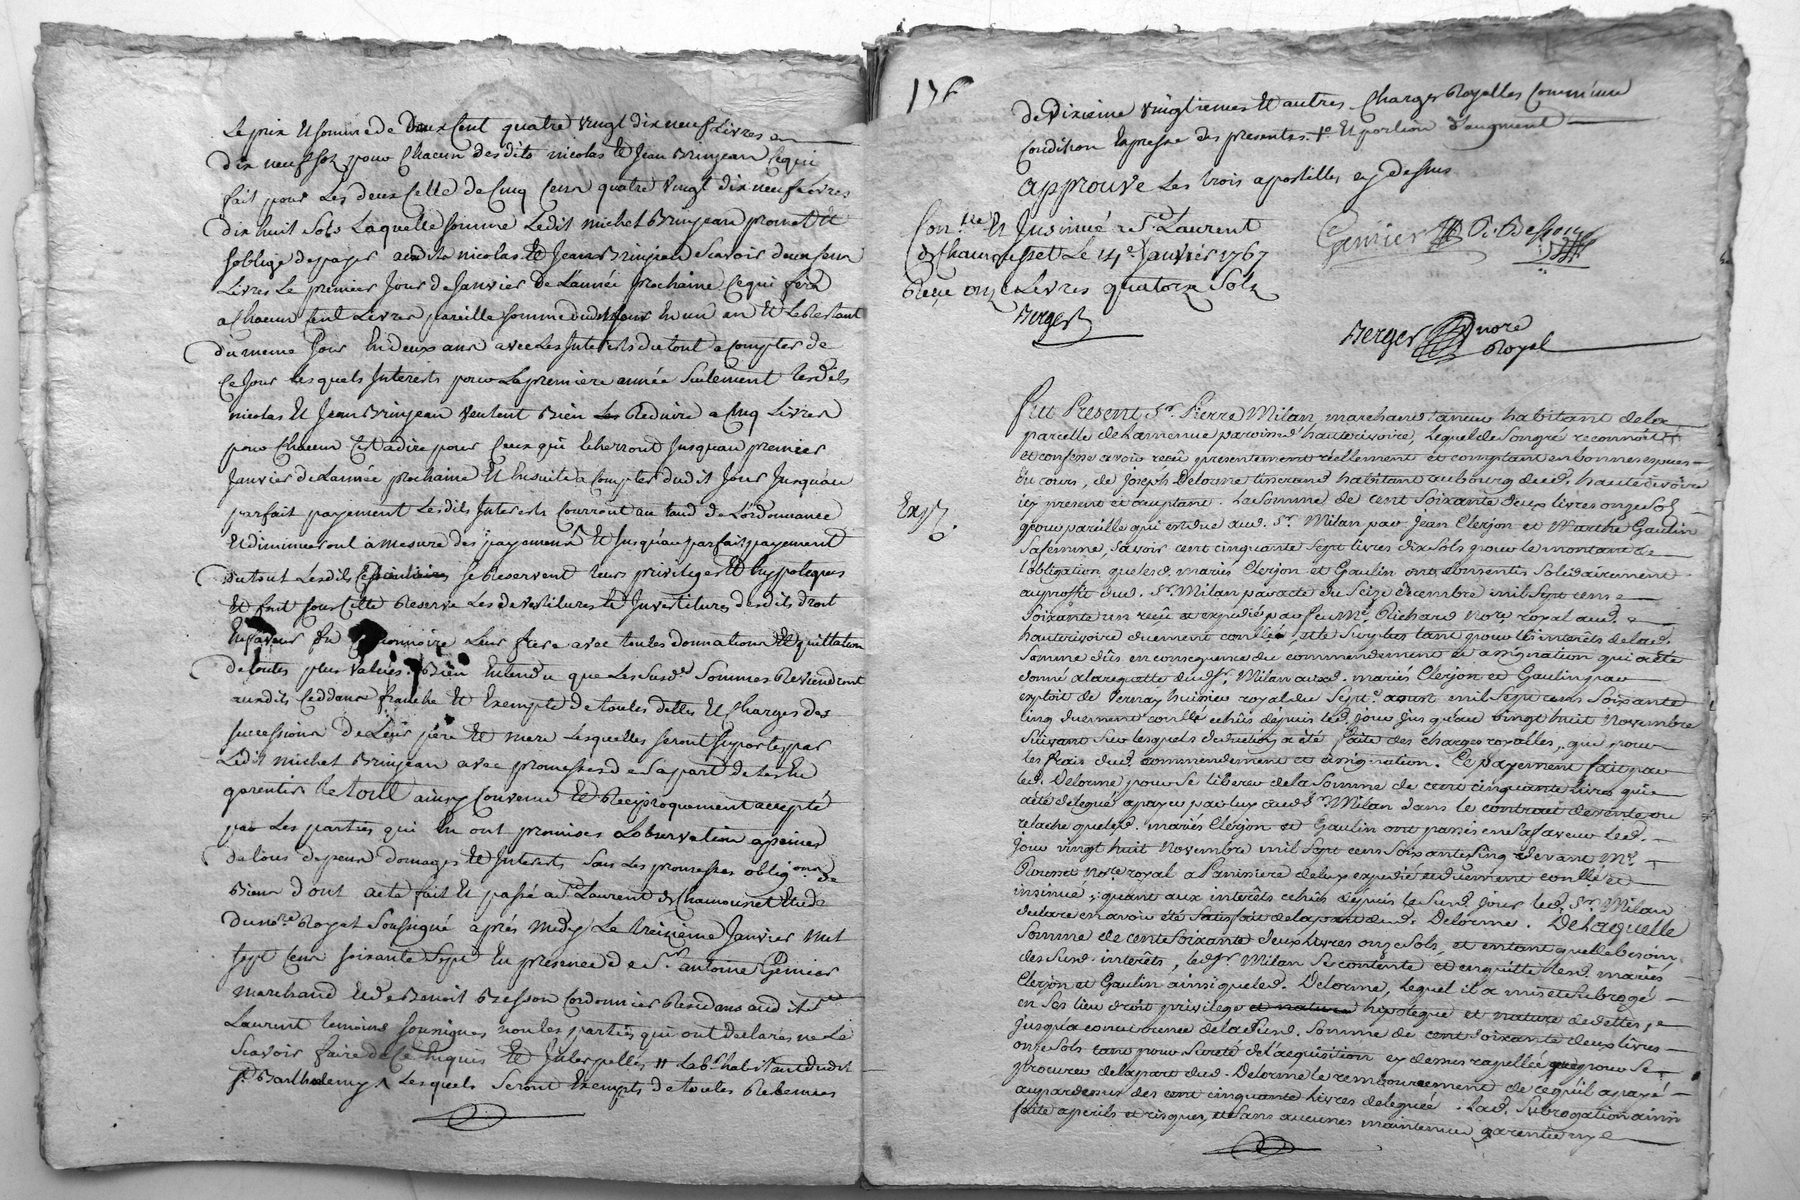 Le prix et somme de deux cent quatre vingt dix neuf Livres
dix neuf sol pour Chacun desdits nicolas et Jean Brinjean Ce qui
fait pour Les deux Celle de Cinq Cens quatre vingt dix neuf Livres
dix huit sols Laquelle somme Ledit michel Brinjean promet et
soblige de payer auxdits nicolas et Jean Brinjean Scavoir deux Cens
Livres Le premier Jour de Janvier de L'année prochaine Ce qui fera
a Chacun Cent Livres pareille somme dudit Jour En un an et Le Restant
du meme Jour En deux ans avec Les Interests du tout a Compter de
Ce Jour Les quels Interests pour La premiere année Seulement Lesdits
nicolas Et Jean Brinjean veulent Bien Les Reduire a Cinq Livres
pour Chacun C'est adire pour Ceux qui Echerront Jusqu'au premier
Janvier de L'année prochaine Et Ensuite a Compter dudit Jour Jusquau
parfait payement Lesdits Interests Courront au taud de L'ordonnance
Et diminueront a mesure des payemens Et Jusquau parfait payement
du tout Lesdits se Reservent Leurs privileges Et hyppoteques
Et font sous Cette Reserve Les devestitures Et Investitures desdits droits
En faveur du Leur frere avec toutes donnations Et quittation
de toutes plus values. Bien Entendu que Les Susd. Sommes Reviendront
auxdits Ceddans franche Et Exempte de toutes dettes Et Charges des
successions De Leurs pere Et mere Lesquelles seront suportez par
Ledit michel Brinjean avec promesses de Sa part de Les En
garentir Le tout ainsy Convenu Et Reciproquement accepté
par Les parties qui En ont promises L'observation a peines
de tous depens domages Et Interests Sous Les promesses oblig.ons de
Biens dont acte fait Et passé a St Laurent de Chamousset Etude
du no.re Royal Soussigné après midy Le treizieme Janvier mil
sept Cens soixante Sept En presence de Sr. antoine Gemier
marchand Et de Benoit Bresson Cordonnier Residans audit St
Laurent temoins soussignes non les parties qui ont declarés ne Le
Scavoir faire de Ce Enquis Et Interpellés Lesd. habitant dudit
St. Barthelemy Lesquels Seront Exempts de toutes Retenues
176
de Dixieme vingtiemes Et autres Charges Royalles Comme une
Condition Expresse des presentes + Et portion d'augment
approuve Les trois apostilles cy dessus
Con.lle Et Insinué a St. Laurent
de Chamousset Le 14e Janvier 1767
Reçu onze Livres quatorze Sols
Berger
Gemier
Berger nore
Royal
Fut Present, Sr. Pierre Milan, marchand taneur habitant de la
parcelle de Lamenue paroisse d'hauterivoire, Lequel de Son gré reconnoit
et confesse avoir reçû presentement réellement et comptant en bonnes especes
du cours, de Joseph Delorme tisserand habitant au bourg dud. hauterivoire
icy present et acceptant. La Somme de cent Soixante deux livres onze Sols
pour pareille qui est due aud. Sr. Milan par Jean Clerjon et Marthe Gaulin
Sa femme, Savoir cent cinquante Sept livres dix Sols pour le montant de
l'obligation que lesd. mariés Clerjon et Gaulin ont consentis Solidairement
au proffit dud. Sr. Milan par acte du Seize Decembre mil Sept cens
Soixante un reçû et expedié par feu Me. Richard Nore. royal aud.
hauterivoire duement conllé et le Surplus tant pour les intérêts de lad.
Somme dûs en consequence du commendement et assignation qui a été
donné a la requette dud. Sr. Milan auxd. mariés Clerjon et Gaulin par
exploit de Pernay huissier royal du Sept aoust mil Sept cens Soixante
Cinq duement conllé echûs depuis led. jour jusqu'au vingt huit Novembre
Suivant Sur lesquels deduction a été faite des charges royalles, que pour
les frais dud. commendement et assignation. Ce payement fait par
led. Delorme pour Se liberer de la Somme de cent cinquante livres qui a
a été delegué a payer par luy aud. Sr Milan dans le contrat de vente ou
relache que lesd. mariés Clerjon et Gaulin ont passés en Sa faveur led.
jour vingt huit Novembre mil Sept cens Soixante Cinq devant Me.
Nore. royal a Panissiere de luy expedié et duement conllé et
insinué; quant aux intérêts echûs depuis le Susd. jour led. Sr. Milan
declare en avoir été Satisfait de la part dud. Delorme. De Laquelle
Somme de cent Soixante deux livres onze Sols, et entant que de besoin
des Susd. intérêts, led. Sr Milan Se contente et en quitte lesd. mariés
Clerjon et Gaulin ainsi que led. Delorme, Lequel il a mis et Subrogé
en Ses lieu droit privilege et nature hipoteque et nature de dettes,
jusqu'a concurrence de la Susd. Somme de cent Soixante deux livres
onze Sols tant pour Sureté de l'acquisition cy dessus rapellée que pour Se
procurer de la part dud. Delorme le remboursement de ce qu'il a payé
au par dessus des cent cinquante livres delegués. Lad. Subrogation ainsi
faite a perils et risques, et Sans aucunes maintenue garentie ny